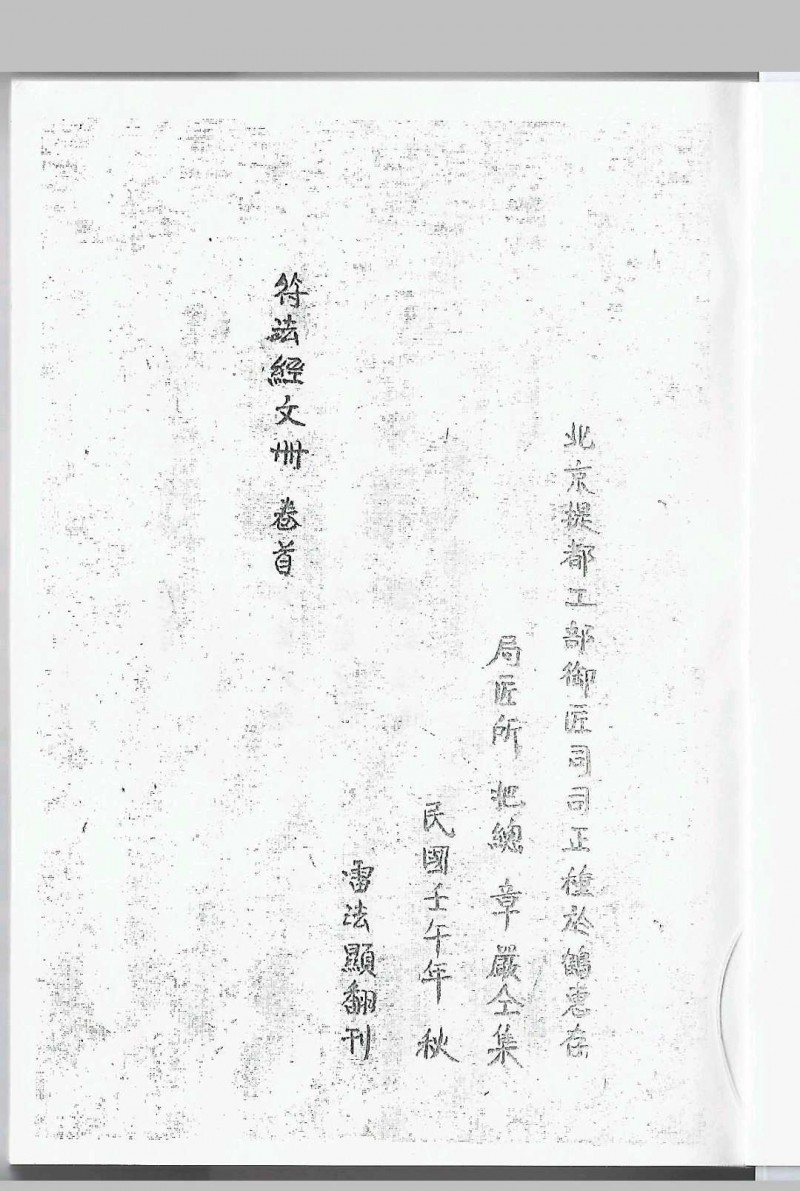 北京提都工部御匠司司正種於鶴惠存
局匠所 把總 章嚴仝集
民國壬午年 秋
雷法顯翻刊
符法經文冊 卷首